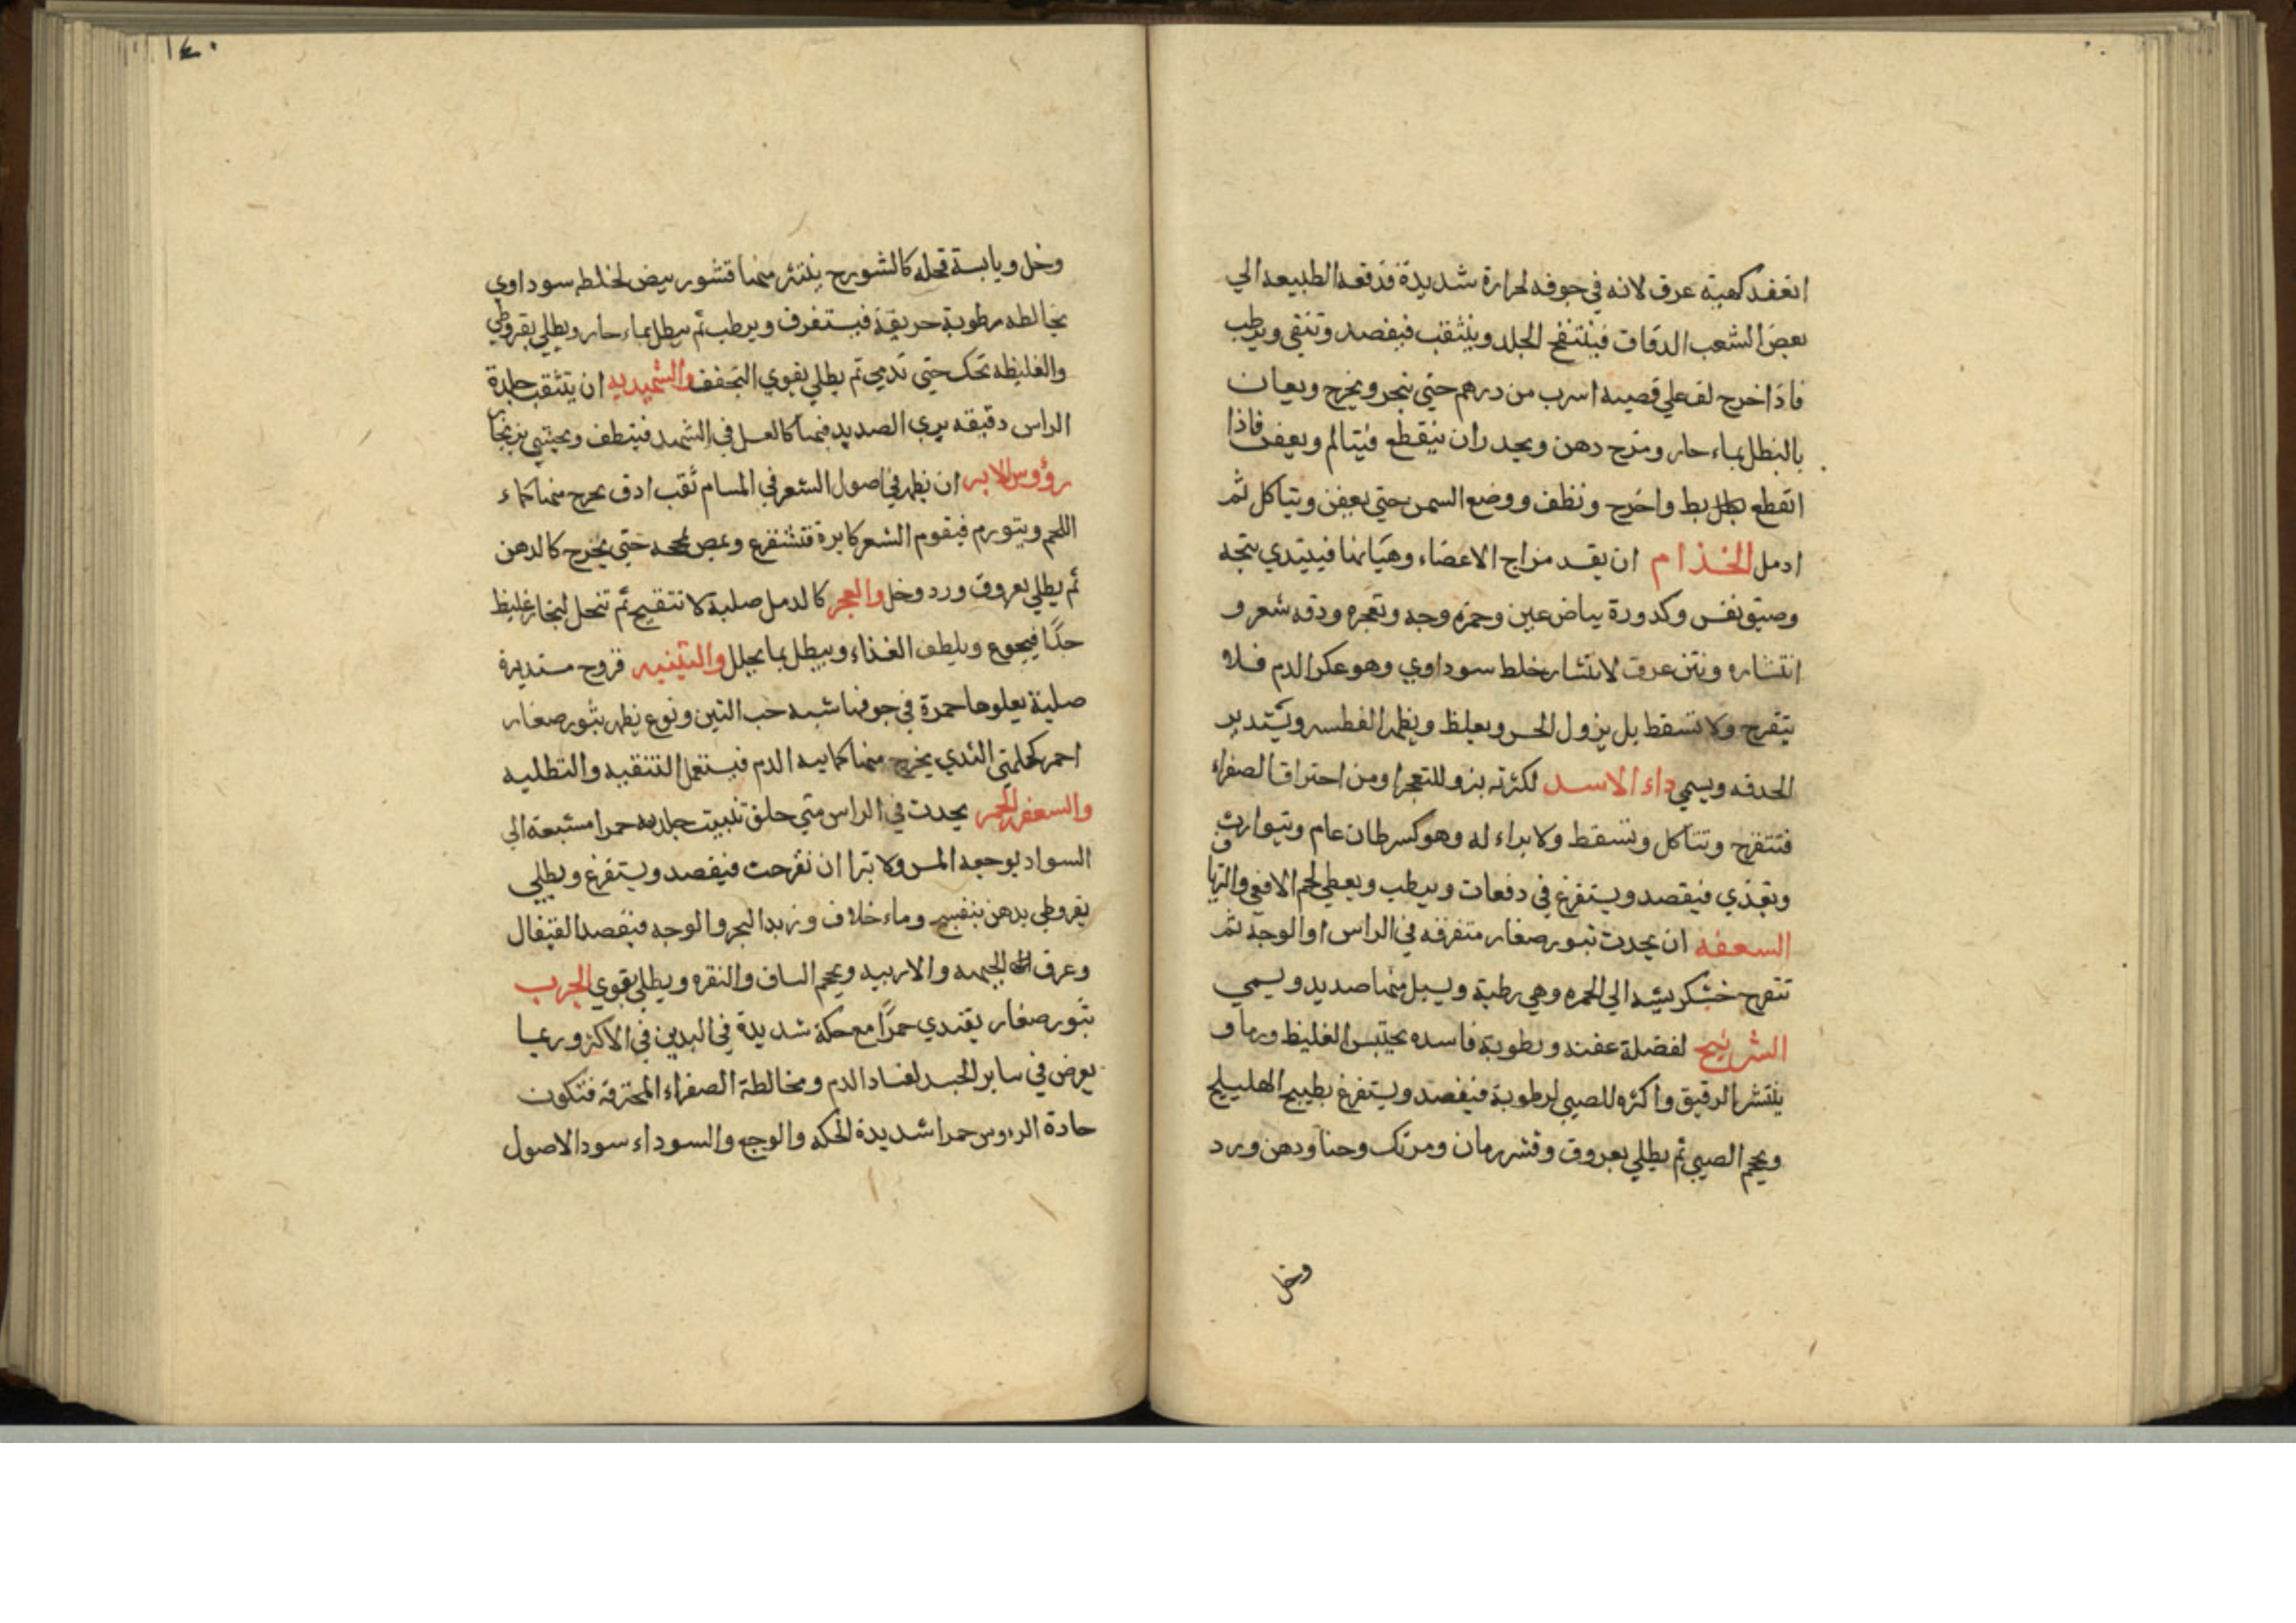 انعقد كهيئة عرق لانه في جوفه لحرارة شديدة فدفعه الطبيعه الي
بعض الشعب الدقاق فينتفخ الجلد وينثقب فيفصد وتنقي ويرطب
فاذا خرج لف علي قصبه اسرب من درهم حتي ينجر ويخرج ويعان
بالنطل بماء حار ومزج دهن ويحدر ان ينقطع فيتالم ويعفن فاذا
انقطع بط واخرج ونظف ووضع السمن حتي يعفن ويتاكل ثم
ادمل الخذام ان يفسد مزاج الاعضاء وهياتها فيبتدي ببحه
وضيق نفس وكدورة بياض عين وحمزه وجه وتعجره ودقه شعر و
انتشاره ونتن عرق لانتشار خلط سوداوي وهو عكر الدم فلا
يتقرح ولا تسقط بل يزول الحس ويغلظ ويظهر الفطسه ويستدير
الحدقه ويسمي داء الاسد لكثرته بنو للتعجر او من احتراق الصفراء
فتتقرح وتتاكل وتسقط ولا براء له وهو كسرطان عام ويتوارث
وتعدي فيفصد ويستفرغ في دفعات ويرطب ويعطي لحم الافعي والترياق
السعفه ان يحدث ثبور صغار متفرقه في الراس او الوجه ثم
تتقرح خشكريشه الي الحمره وهي رطبة ويسيل منها صديد ويسمي
الشرينج لفضلة عفنه ورطوبة فاسده يحتبس الغليظ ورما و
ينتشر الرقيق واكثره للصبي لرطوبة فيفصد ويستفرغ بطبيخ الهليلج
ويحجم الصبي ثم يطلي بعروق وقشر رمان ومرتك وحنا ودهن ورد
وخل
١٤٠
وخل ويابسة قحله كالشورج ينتثر منها قشور بيض لخلط سوداوي
يخالطه رطوبة حريفة فيستفرف ويرطب ثم ينطل بماء حار ويطلي بقروطي
والغليظه تحك حتي تدمي ثم يطلي بقوي التجفف والشهيديه ان يتثقب جلدة
الراس دقيقه يري الصديد فيها كالعسل في الشهد فينظف ويحشي بزنجار
رؤوس الابر ان يظهر في اصول الشعر في المسام ثقب ادق يخرج منها كماء
اللحم ويتورم فيقوم الشعر كابرة فتستفرغ وعصر حتي يخرج كالدهن
ثم يطلي بعروق ورد وخل والعجر كالدمل صلبة لا تتقيح ثم تنحل لبخار غليظ
جدًا فيجوع ويلطف الغذاء وينطل بما يحلل والتينيه قروح مستديرة
صلبة يعلوها حمرة في جوفها شبه حب التين ونوع يظهر بثور صغار
احمر كحلمتي الثدي يخرج منها كماييه الدم فيستعمل التنقيه والتطليه
والسعفه الحمر يحدث في الراس متي حلق تبينت جلدته حمرا مشبعة الي
السواد يوجعه المس ولا تبرا ان تقرحت فيفصد ويستفرغ ويطلي
بقروطي بدهن بنفسج وماء خلاف وزبد البحر والوجه فيفصد القيفال
وعرق الجبهه والارنبيه ويحجم الساق والنقره ويطلي بقوي الجرب
بثور صغار يقتدي حمرًا مع حكة شديدة في اليدين في الاكثر وربما
يعرض في ساير الجسد لفساد الدم ومخالطة الصفراء المحترقه فتكون
حادة الرؤس حمرا شديدة الحكه والوجع والسوداء سود الاصول